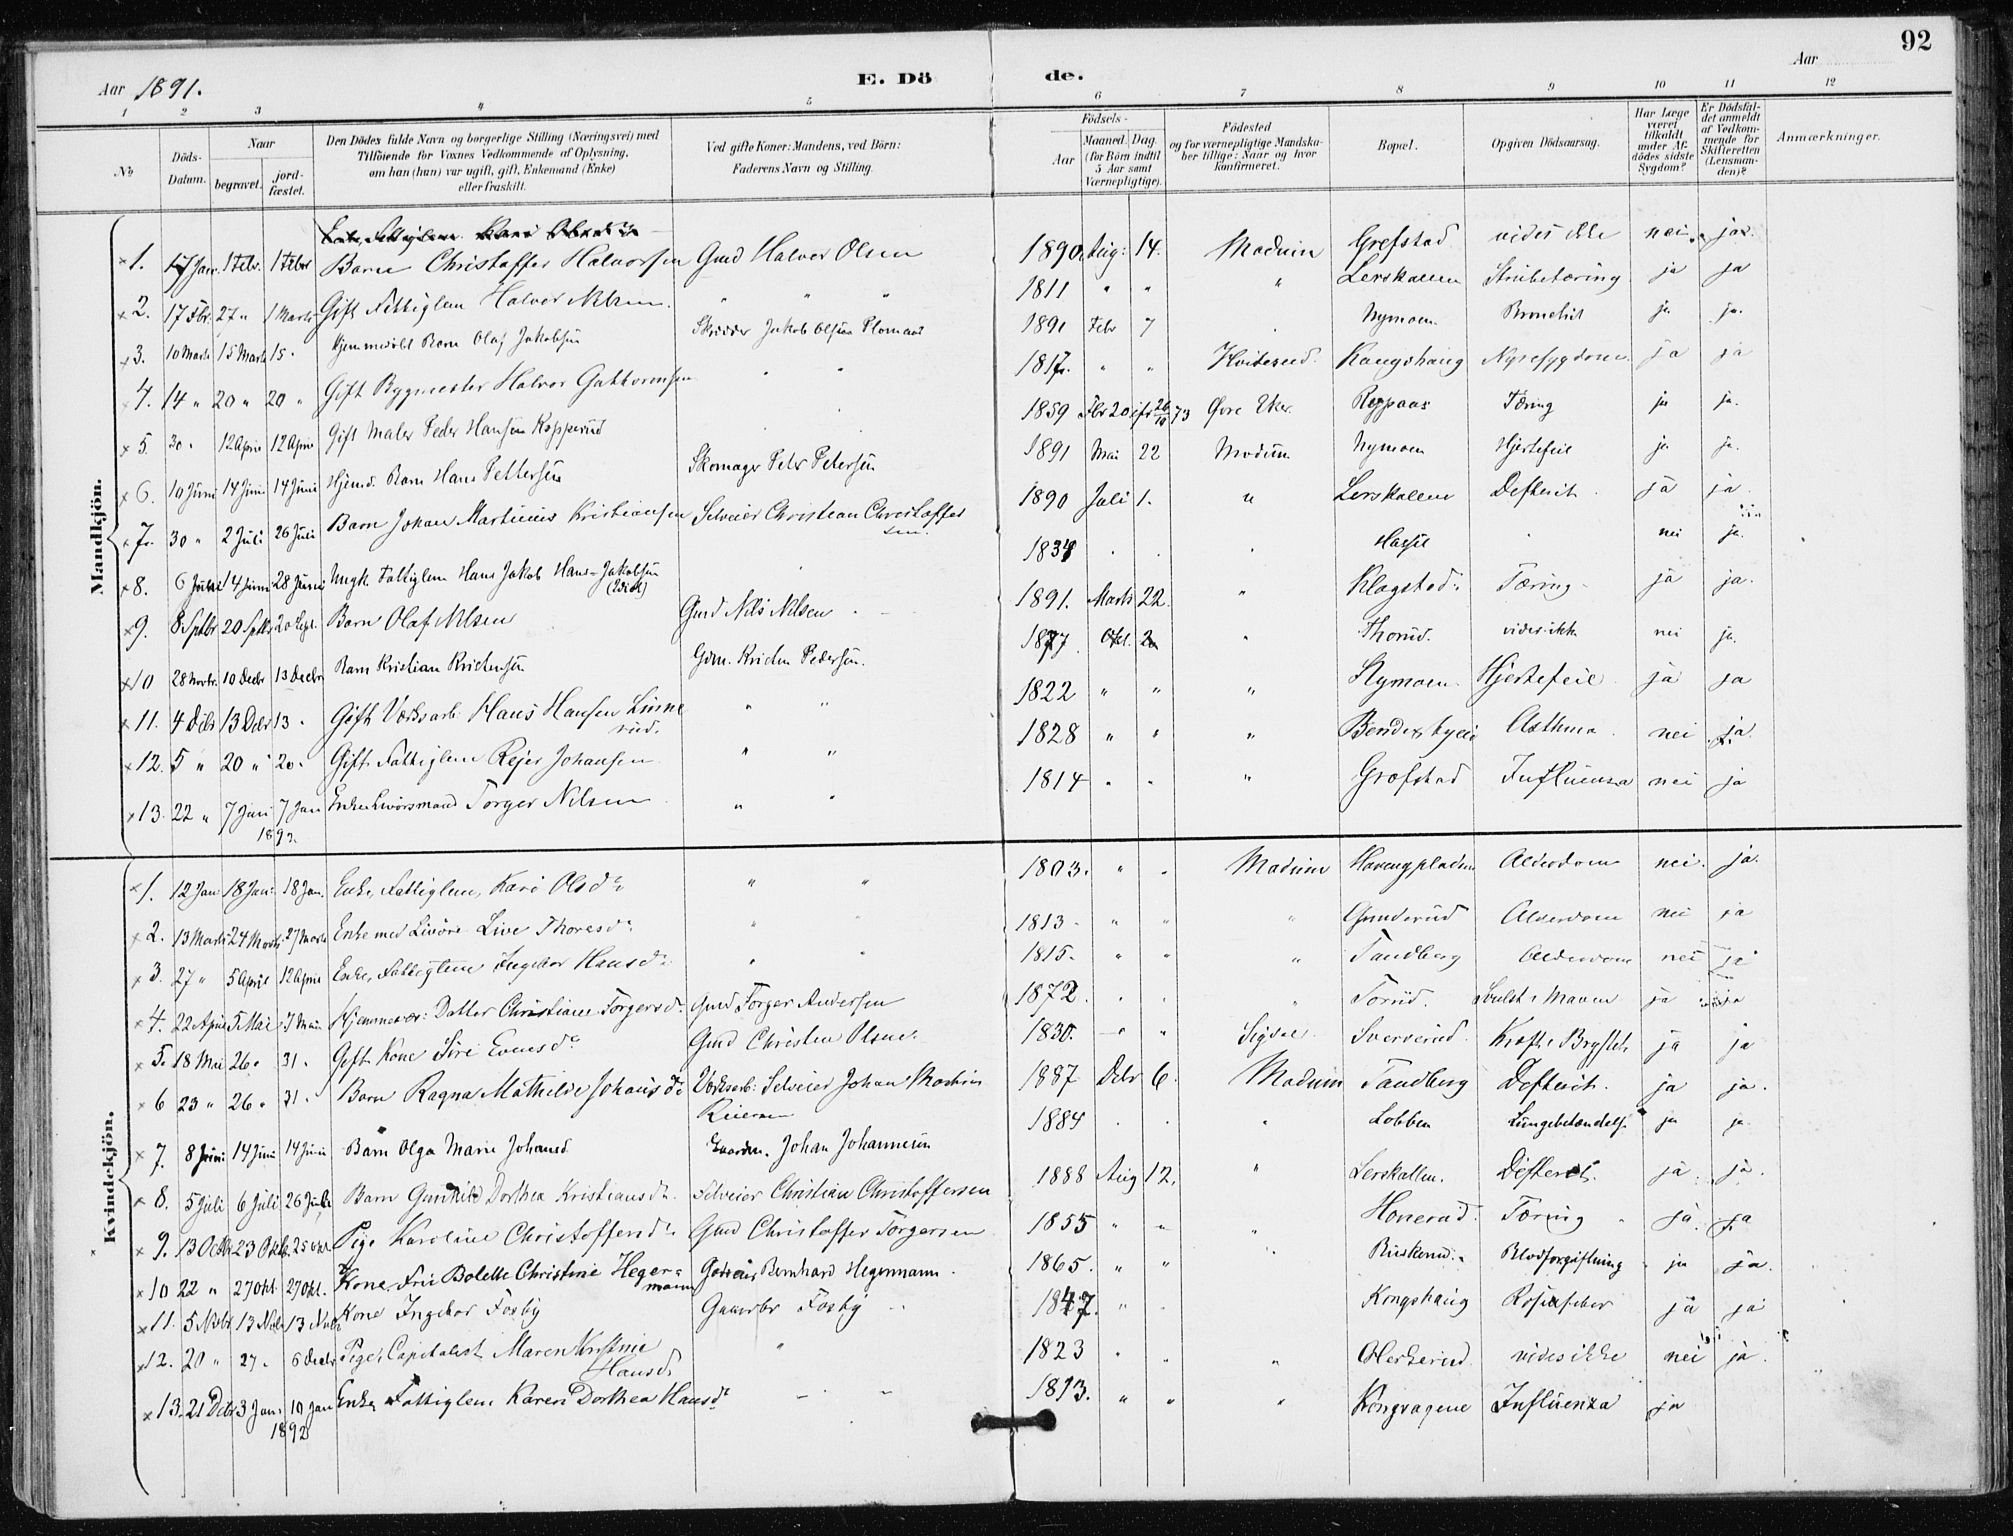 92
Aar 1891. E. Dö de. Aar
1 2 3 4 5 6 7 8 9 10 11 12
No Döds-Datum. Naar begravet. jordfæstet. Den Dödes fulde Navn og borgerlige Stilling (Næringsvei) med Tilföiende for Voxnes Vedkommende af Oplysning, om han (hun) var ugift, gift, Enkemand (Enke) eller fraskilt. Ved gifte Koner: Mandens, ved Börn: Faderens Navn og Stilling. Födsels- Aar Maaned. Dag. (for Börn indtil 5 Aar samt Værnepligtige). Födested og for værnepligtige Mandskaber tillige: Naar og hvor konfirmeret. Bopæl. Opgiven Dödsaarsag. Har Læge været tilkaldt under Afdödes sidste Sygdom? Er Dödsfaldet anmeldt af Vedkommende for Skifteretten (Lensmanden)? Anmærkninger.
Mandkjön.
1. 17 Jan. 1 Febr. 1 Febr Barn Christoffer Halvorsen Gmd Halvor Olsen 1890 Aug: 14. Modum Grefstad vides ikke nei ja.
2. 17 Fbr. 27 " 1 Marts Gift Fattiglem Halvor Nilsen. " " " 1811 " " " Lerskallen Strubetæring ja ja
3. 10 Marts 15 Marts 15 " Hjemmedøbt Barn Olaf Jakobsen Skrædder Jakob Olsen Plomaas 1891 Febr 7 Nymoen. Bronchit ja ja.
4. 14 " 20 " 20 " Gift Bygmester Halvor Guttormsen " " 1817. " " Hvideseid. Kongshaug Nyresygdom. ja ja
5. 30 " 12 April 12 April Gift Maler Peder Hansen Kopperud 1859 Fbr 20 Øvre Eker. Reppaas Tæring ja ja.
6. 10 Juni 14 Juni 14 Juni Hjemd. Barn Hans Pettersen Skomager Peter Petersen 1891 Mai 22 Modum Nymoen Hjertefeil ja ja.
7. 30 " 2 Juli 26 Juli Barn Johan Martinius Kristiansen Selveier Christian Christoffersen. 1890 Juli 1. " Lerskallen Defterit ja ja.
8. 14 Juni 28 Juni Ungk. Fattiglem Hans Jakob Hans-Jakobsen 1834 . . Hassel nei ja.
9. 8 Sptbr 20 Sptbr 20 Sept. Barn Olaf Nilsen Gmd Nils Nilsen 1891. Marts 22. " Klogstad. Tæring ja ja.
10 28 Novbr. 10 Decbr 13 Decbr Barn Kristian Kristensen Gdm. Kristen Pedersen. 1877 Okt. " Thorud. vides ikke nei ja.
11. 4 Dcbr 13 Dcbr 13 " Gift Værksarb. Hans Hansen Linnerud. " " 1822 " " " Nymoen. Hjertefeil ja ja
12. 5 " 20 " 20 " Gift Fattiglem Rejer Johansen " " 1828 " " " Asthma. nei ja.
13. 22 " 7 Jan 7 Jan 1892. Enkem Livørsmand Torger Nilsen " " 1814 " " " Grefstad Influensa nei ja
Kvindekjön.
1. 12 Jan 18 Jan. 18 Jan. Enke, Fattiglem, Kari Olsdr " " 1803. " " Modum Alderdom nei. ja.
2. 13 Marts 24 Marts 27 Marts Enke med Livøre Live Thoresdr " " 1813 " " " Gunderud Alderdom nei ja
3. 27 " 5 April 12 April Enke, Fattiglem Ingebor Hansdr " " 1815. " " " Tandberg Alderdom nei ja
4. 22 April 5 Mai 7 Mai Hjemmevær: Datter Christiane Torgersdr Gmd Torger Andersen 1872. " " " Torud. Svulst i Maven ja ja
5. 18 Mai 26 " 31 " Gift Kone Siri Evensdr Gmd Christen Olsen 1830. " " Sigdal Sververud Kræft i Brystet ja ja
6 23 " 26 " 31 " Barn Ragna Mathilde Johansdr Værksarb. Selveier Johan Martin Reiersen 1887 Dcbr 6. Modum Tandberg Defterit. ja ja.
7. 8 Juni 14 Juni 14 Juni Barn Olga Marie Johansd Gaardm. Johan Johannesen 1884 . . " Lobben Lungebetændelse ja ja
8. 5 Juli 6 Juli 26 Juli Barn Gunhild Dorthea Kristiansdr. Selveier Christian Christoffersen 1888 Aug 12. " Lerskallen. Difterit. ja ja.
9. 13 Octbr 23 Oktb. 25 Okt. Pige Karoline Christoffersdr Gmd Christoffer Torgersen 1855 " " " Honerud. Tæring ja ja
10 22 " 27 Okt. 27 Okt. Kone Fru Bolette Christine Hegermann Godseier Bernhard Hegermann. 1865. " " Buskerud. Blodforgiftning ja ja.
11. 5 Nvbr 13 Nvbr 13 Nvbr Kone Ingebor Fosby Gaardbr Fosby 1847. " " Kongshaug Rosenfeber ja ja
12. 20 " 27 " 6 Decbr Pige, Capitalist Maren Kristine Hansd. " 1823 " " " vides ikke nei ja.
13. 21 Dcbr 3 Jan. 10 Jan 1892 Enke Fattiglem Karen Dorthea Hansdr 1813. " " " Influenza ja